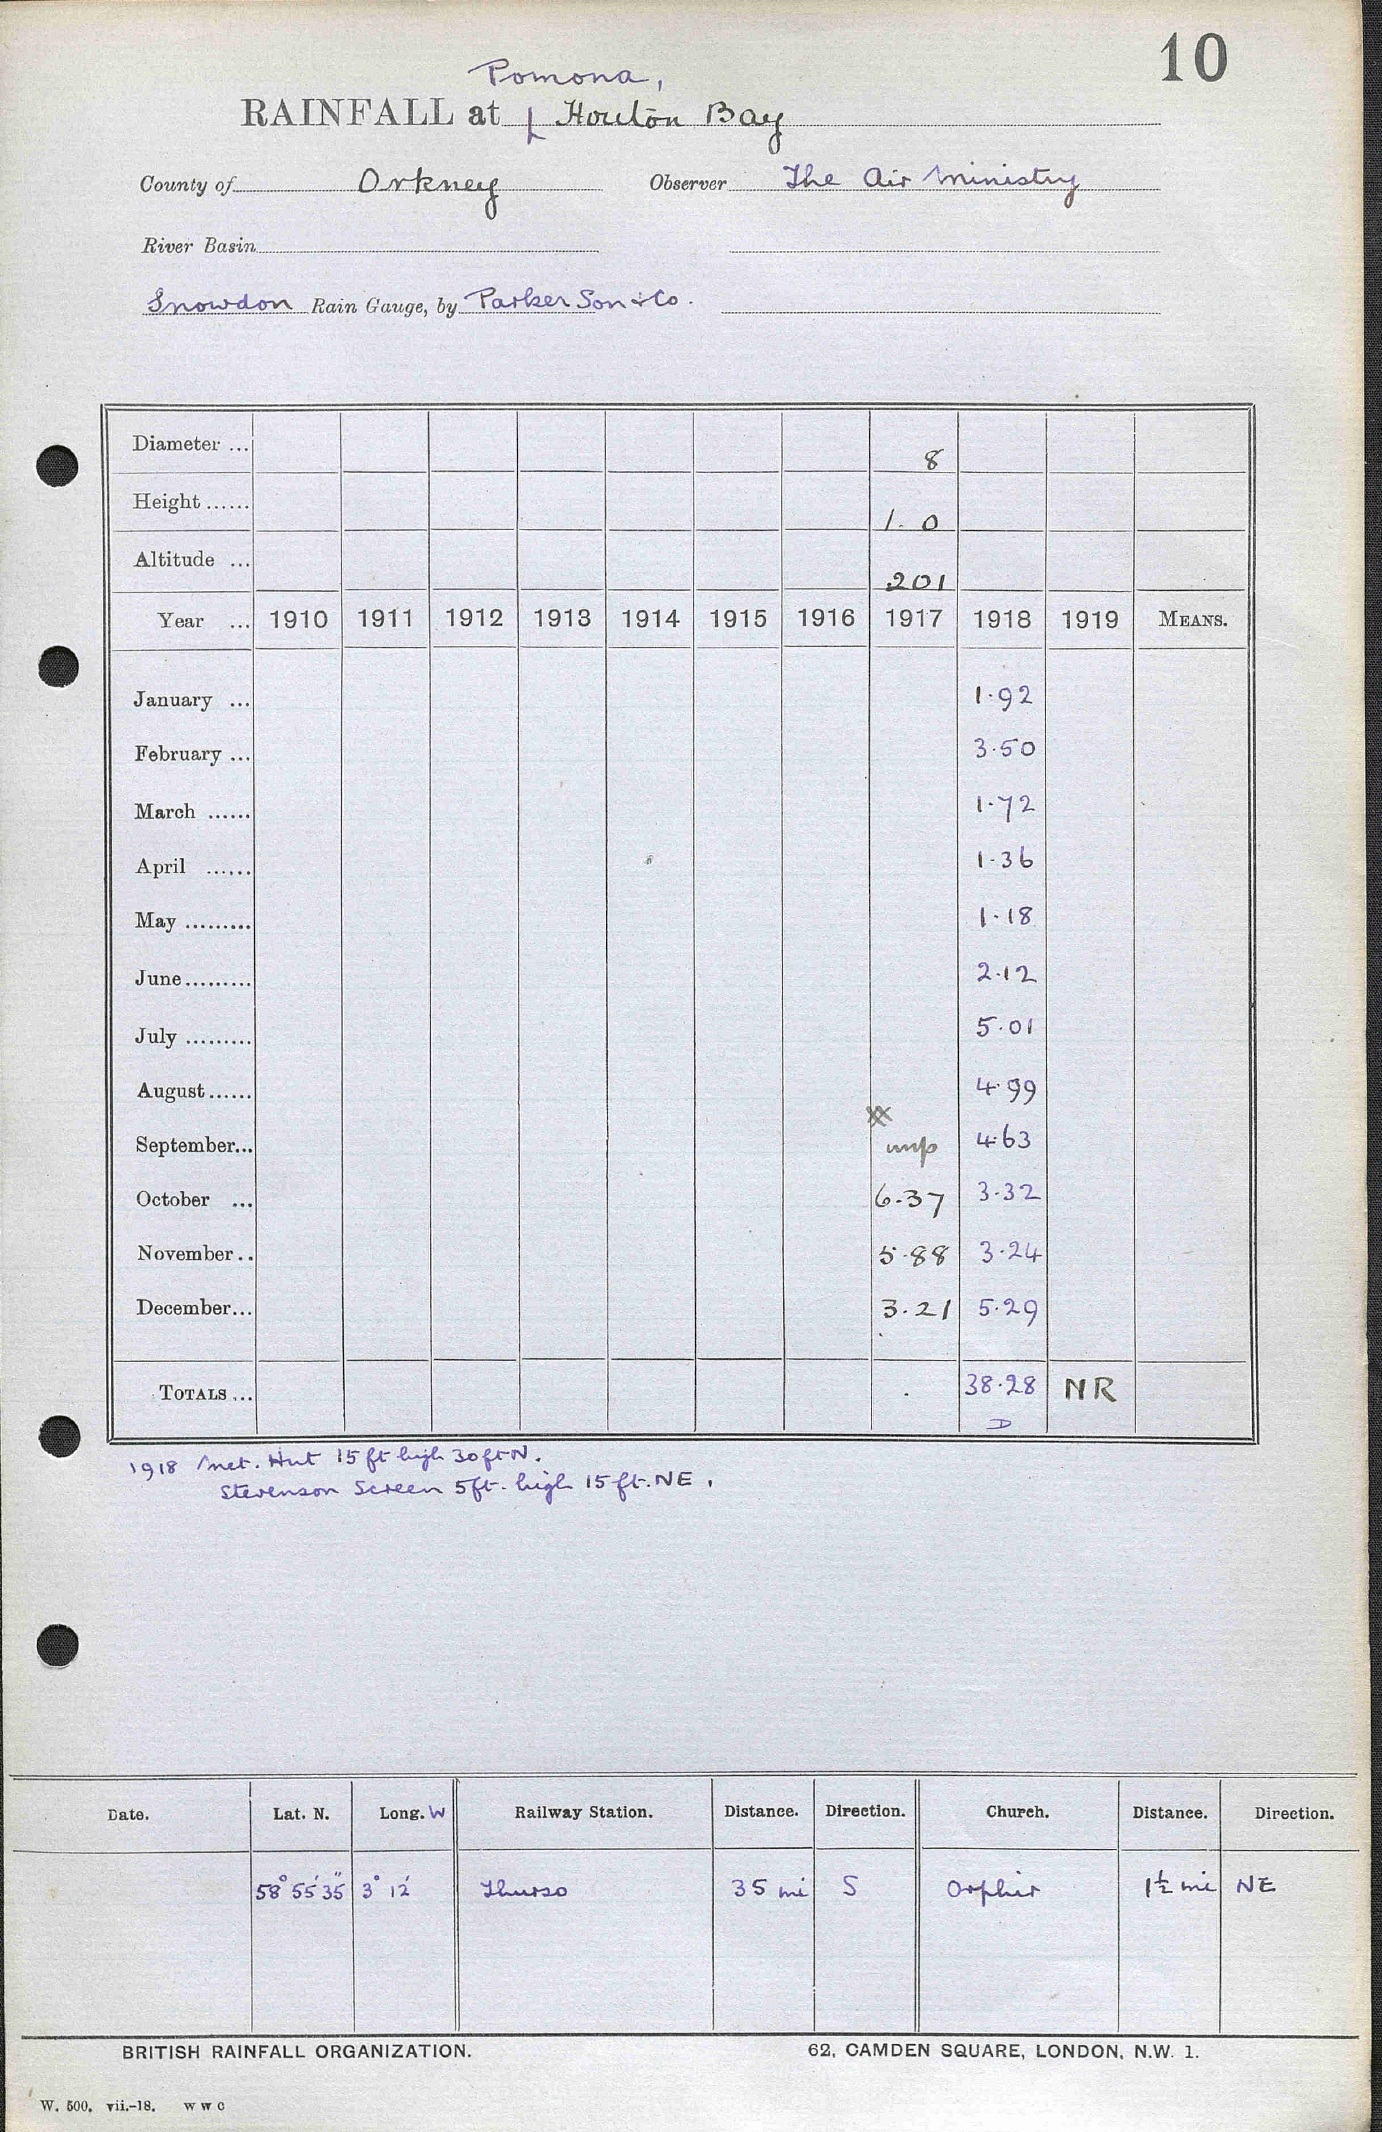 10
Pomona,
RAINFALL at Houton Bay
County of Orkney Observer The Air Ministry
River Basin
Snowdon Rain Gauge, by Parker Son & Co.
Diameter ... 8
Height ...... 1. 0
Altitude ... 201
Year ... 1910 1911 1912 1913 1914 1915 1916 1917 1918 1919 MEANS.
January ... 1.92
February ... 3.50
March ...... 1.72
April ...... 1.36
May ......... 1.18
June ......... 2.12
July ......... 5.01
August ...... 4.99
xx
September... 4.63
October ... 6.37 3.32
November .. 5.88 3.24
December... 3.21 5.29
TOTALS ... 38.28 NR
D
1918 Met. Hut 15 ft high 30 ft N.
Stevenson Screen 5ft. high 15 ft. NE.
Date. Lat. N. Long. W Railway Station. Distance. Direction. Church. Distance. Direction.
58° 55' 35" 3° 12' Thurso 35 mi S Orphir 1½ mi NE
BRITISH RAINFALL ORGANIZATION. 62, CAMDEN SQUARE, LONDON, N.W. 1.
W. 500. vii.-18. W W C